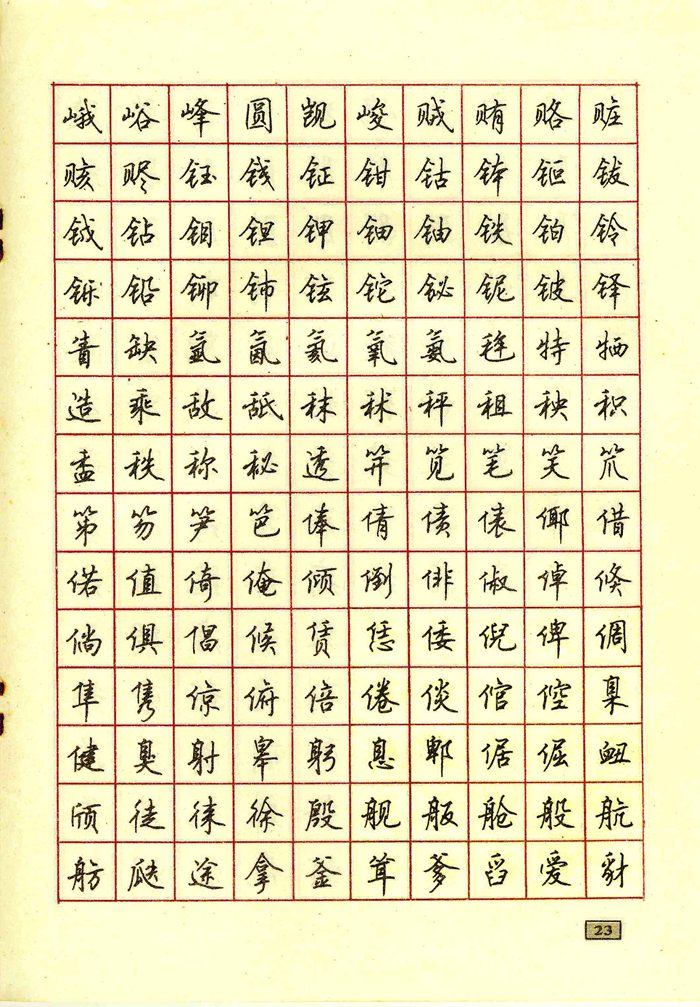 峨峪峰圆觊峻贼贿赂赃
赅赆钰钱钲钳钴钵钷钹
钺钻钼钽钾钿铀铁铂铃
铄铅铆铈铉铊铋铌铍铎
眚缺氩氤氦氧氨毪特牺
造乘敌舐秣秫秤租秧积
盉秩称秘透笄笕笔笑笊
笫笏笋笆俸倩债俵倻借
偌值倚俺倾倒俳俶倬倏
倘俱倡候赁恁倭倪俾倜
隼隽倞俯倍倦倓倌倥臬
健臭射皋躬息郫倨倔衄
颀徒徕徐殷舰舨舱般航
舫瓞途拿釜耸爹舀爱豺
23